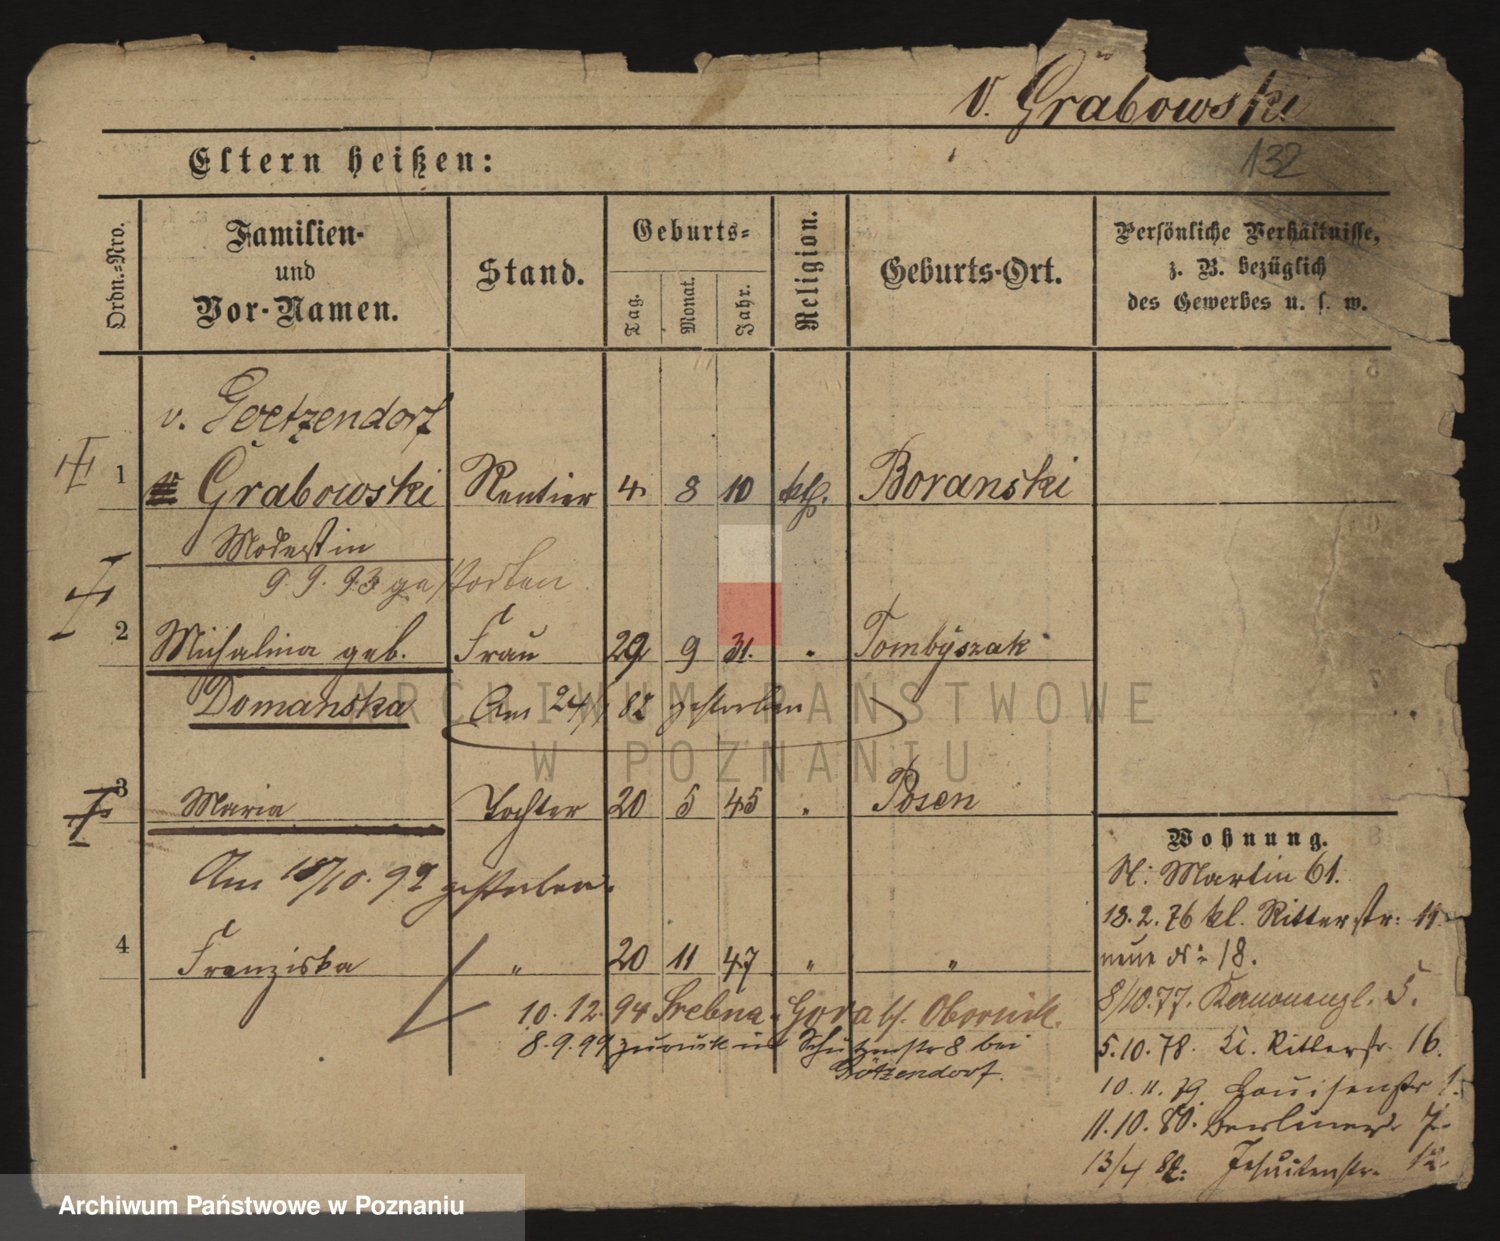 v. Grabowski
132
Eltern heißen:
Ordn.-Nro.
Familien-
und
Vor-Namen.
Stand.
Geburts-
Tag.
Monat.
Jahr.
Religion.
Geburts-Ort.
Persönliche Verhältnisse,
z. B. bezüglich
des Gewerbes u. s. w.
v. Goetzendorf
1 v Grabowski Rentier 4 8 10 kth. Boranski
Modestin
9. 9. 93 gestorben
2 Michalina geb. Frau 29 9 31. " Tombyszak
Domanska Am 24/ 82 gestorben
3 Maria Tochter 20 5 45 " Posen
Am 18/10. 97 gestorben.
4 Franziska " 20 11 47 " "
10. 12. 94 Srebna-Gora Obornik.
8. 9. 99 zurück in Schützenstr 8 bei
Götzendorf.
Wohnung.
St: Martin 61.
13. 2. 76 kl. Ritterstr: 11
neue No 18.
8/10. 77. Kanonenpl. 5.
5. 10. 78. kl. Ritterstr. 16.
10. 11. 79. Louisenstr 1.
11. 10. 80. Berlinerstr 7.
13/4 82: Jesuitenstr. 12
ARCHIWUM PAŃSTWOWE
W POZNANIU
Archiwum Państwowe w Poznaniu